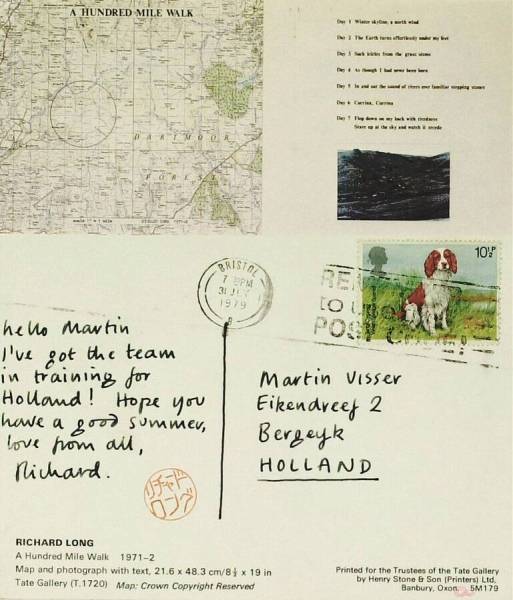 A HUNDRED MILE WALK
DARTMOOR
FOREST
Day 1 Winter skyline, a north wind
Day 2 The Earth turns effortlessly under my feet
Day 3 Suck icicles from the grass stems
Day 4 As though I had never been born
Day 5 In and out the sound of rivers over familiar stepping stones
Day 6 Corrina, Corrina
Day 7 Flop down on my back with tiredness
Stare up at the sky and watch it recede
BRISTOL
7 PM
31 JLY
1979
10½P
POST
hello Martin
I've got the team
in training for
Holland! Hope you
have a good summer,
love from all,
Richard.
リチャード
ロング
Martin Visser
Eikendreef 2
Bergeyk
HOLLAND
RICHARD LONG
A Hundred Mile Walk 1971–2
Map and photograph with text, 21.6 x 48.3 cm/8½ x 19 in
Tate Gallery (T.1720) Map: Crown Copyright Reserved
Printed for the Trustees of the Tate Gallery
by Henry Stone & Son (Printers) Ltd.
Banbury, Oxon. 5M179